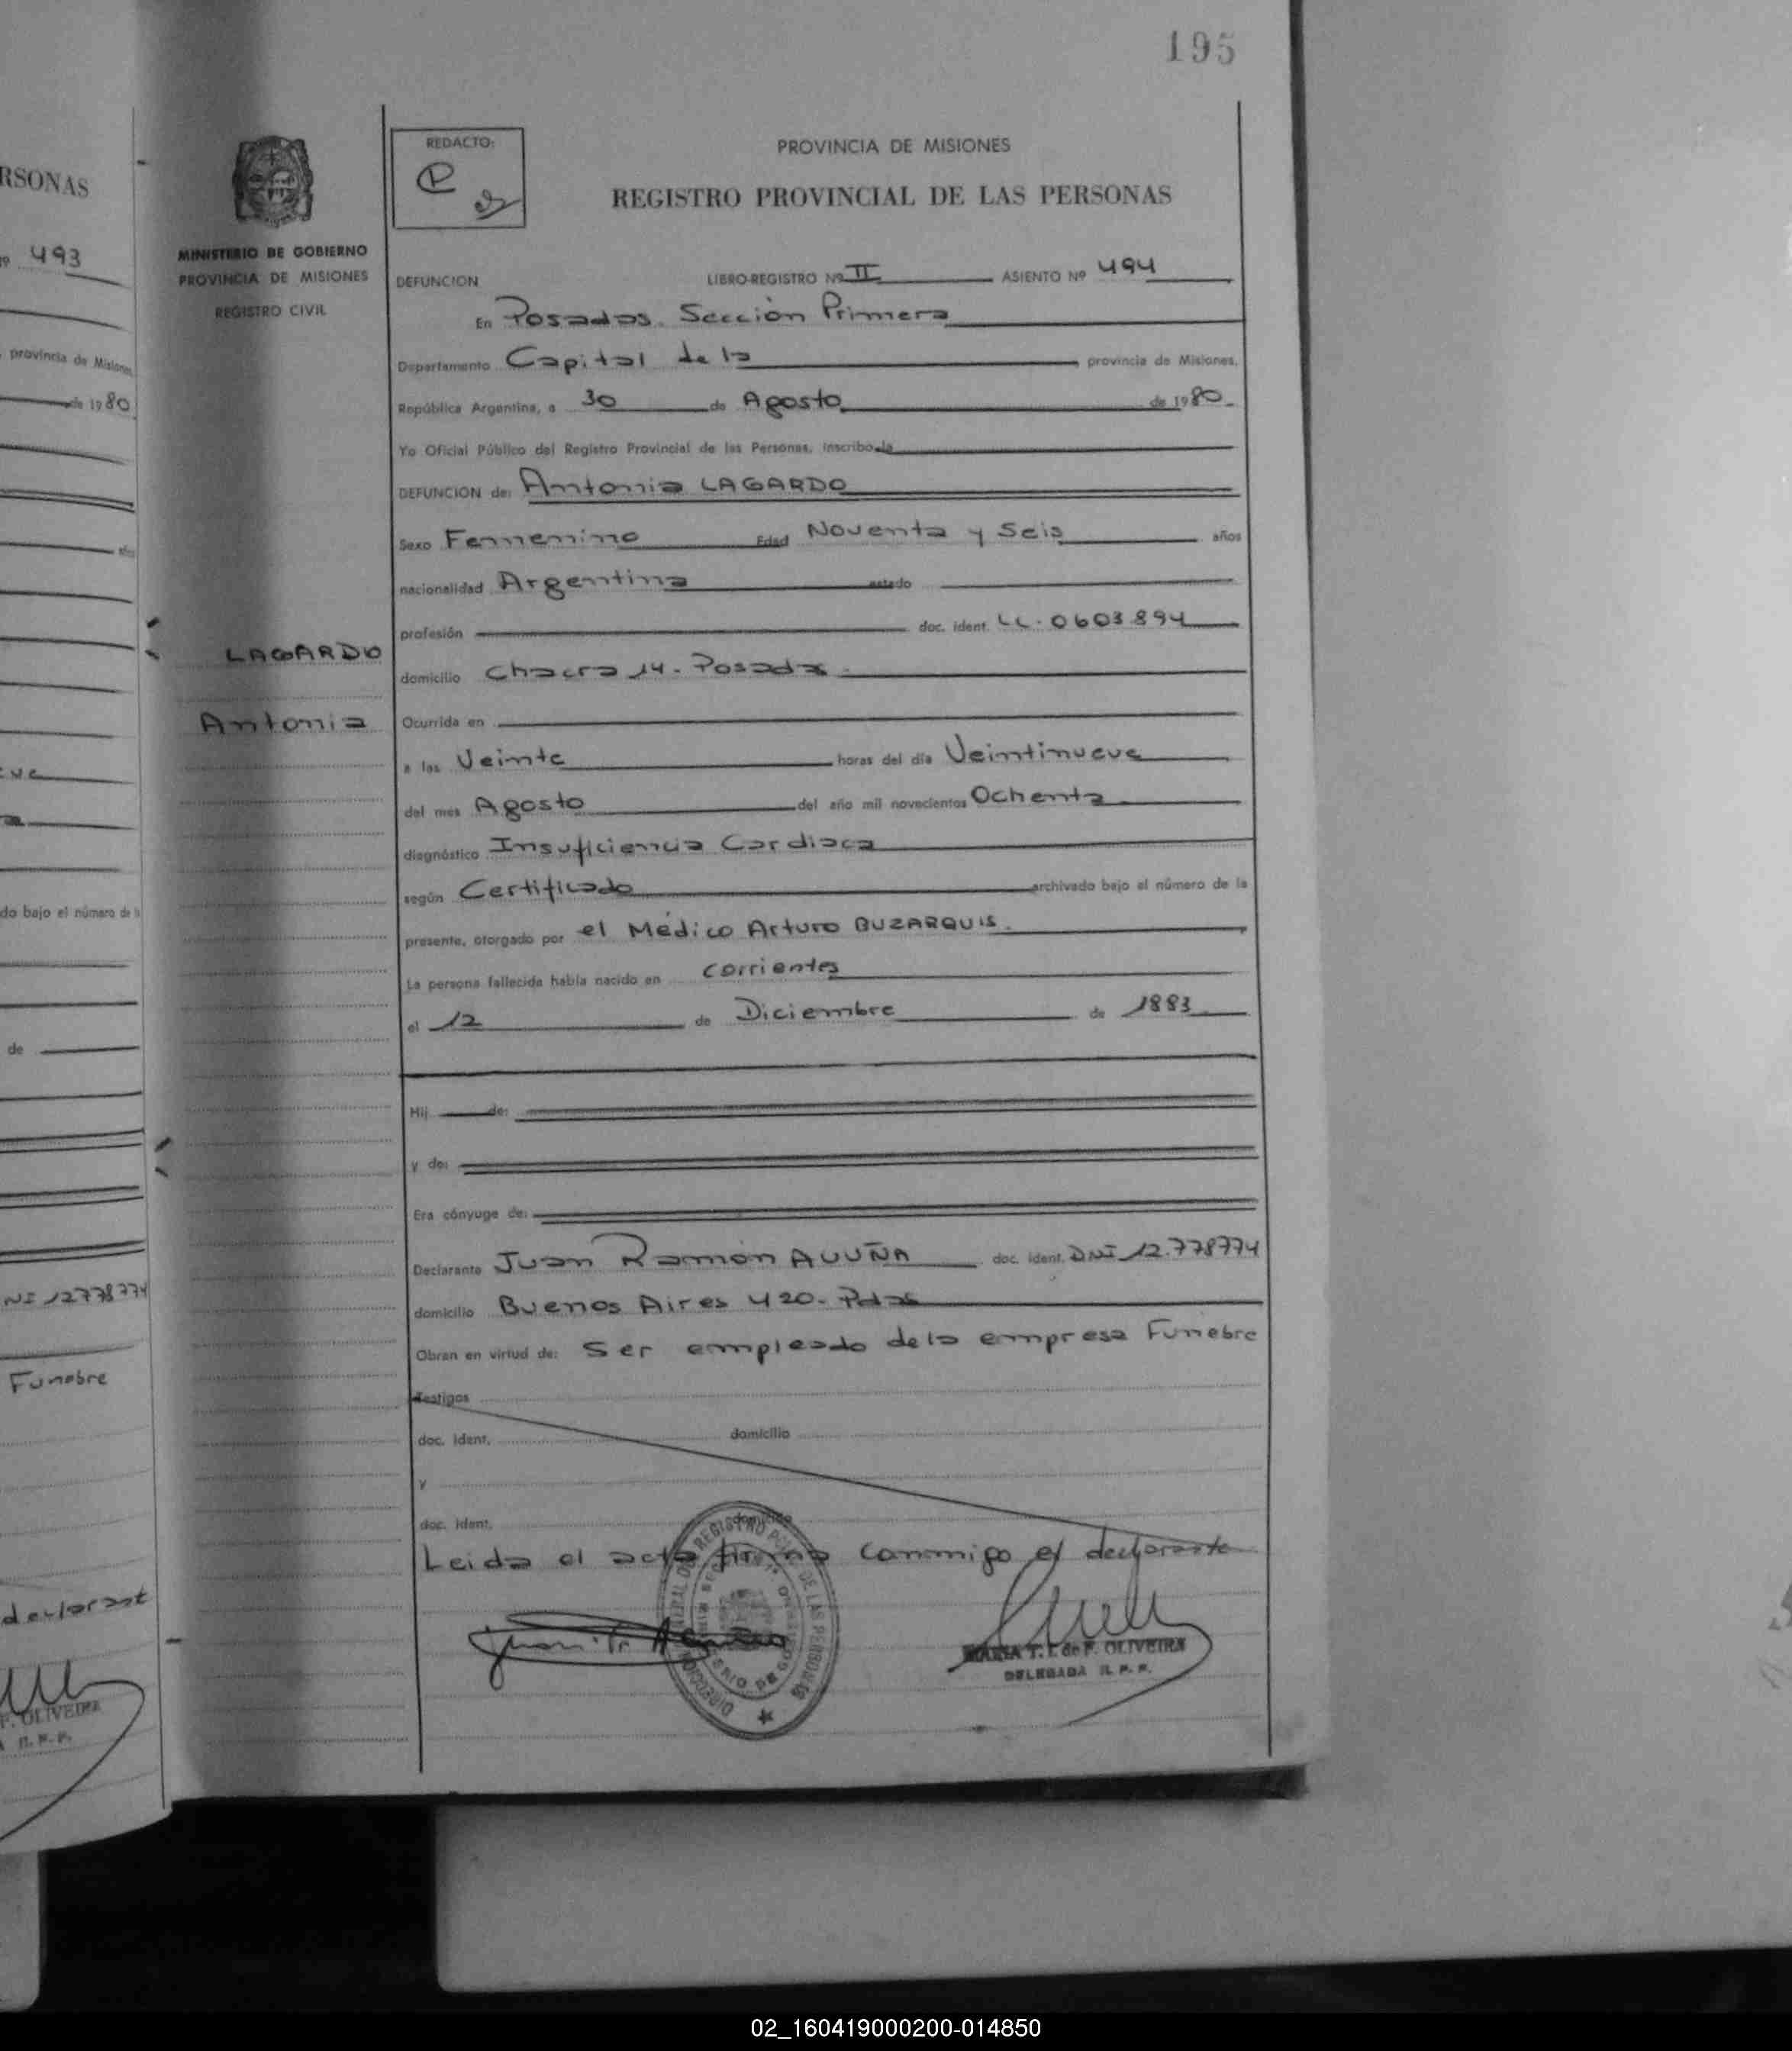 195
RSONAS
Nº 493
provincia de Misiones,
de 1980
do bajo el número de la
de
12778774
Funebre
declarant
F. OLIVEIRA
MINISTERIO DE GOBIERNO
PROVINCIA DE MISIONES
REGISTRO CIVIL
LAGARDO
Antonia
REDACTO:
PROVINCIA DE MISIONES
REGISTRO PROVINCIAL DE LAS PERSONAS
DEFUNCION LIBRO-REGISTRO Nº II ASIENTO Nº 494
En Posadas. Sección Primera
Departamento Capital de la provincia de Misiones,
República Argentina, a 30 de Agosto de 1980
Yo Oficial Público del Registro Provincial de las Personas, inscribo la
DEFUNCION de: Antonia LAGARDO
Sexo Femenino Edad Noventa y Seis años
nacionalidad Argentina estado
profesión doc. ident. LC. 0603894
domicilio Chacra 14. Posadas
Ocurrida en
a las Veinte horas del día Veintinueve
del mes Agosto del año mil novecientos Ochenta
diagnóstico Insuficiencia Cardiaca
según Certificado archivado bajo el número de la
presente, otorgado por el Médico Arturo BUZARQUIS.
La persona fallecida había nacido en corrientes
el 12 de Diciembre de 1883
Hij de:
y de:
Era cónyuge de:
Declarante Juan Ramón ACUÑA doc. ident. DNI 12.778774
domicilio Buenos Aires 420. Pdas
Obran en virtud de: Ser empleado de la empresa Funebre
Testigos
doc. ident. domicilio
y
doc. ident. domicilio
Leida el acta firma conmigo el declarante
MARIA T. I. de F. OLIVEIRA
DELEGADA R. P. P.
02_160419000200-014850